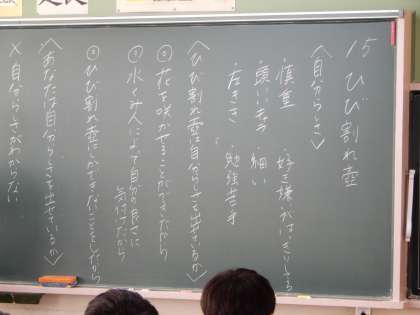 15 ひび割れ壺
〈自分らしさ〉
・慎重 ・好き嫌いがはっきりしてる
・濃いキャラ ・細い
・左きき ・勉強苦手
〈ひび割れ壺は自分らしさを出せているか〉
花を咲かせることができたから
① 水くみ人によって自分の良さに
気付けたから
ひび割れ壺にしかできないことをしたから
〈あなたは自分らしさを出せているか〉
×自分らしさがわからない